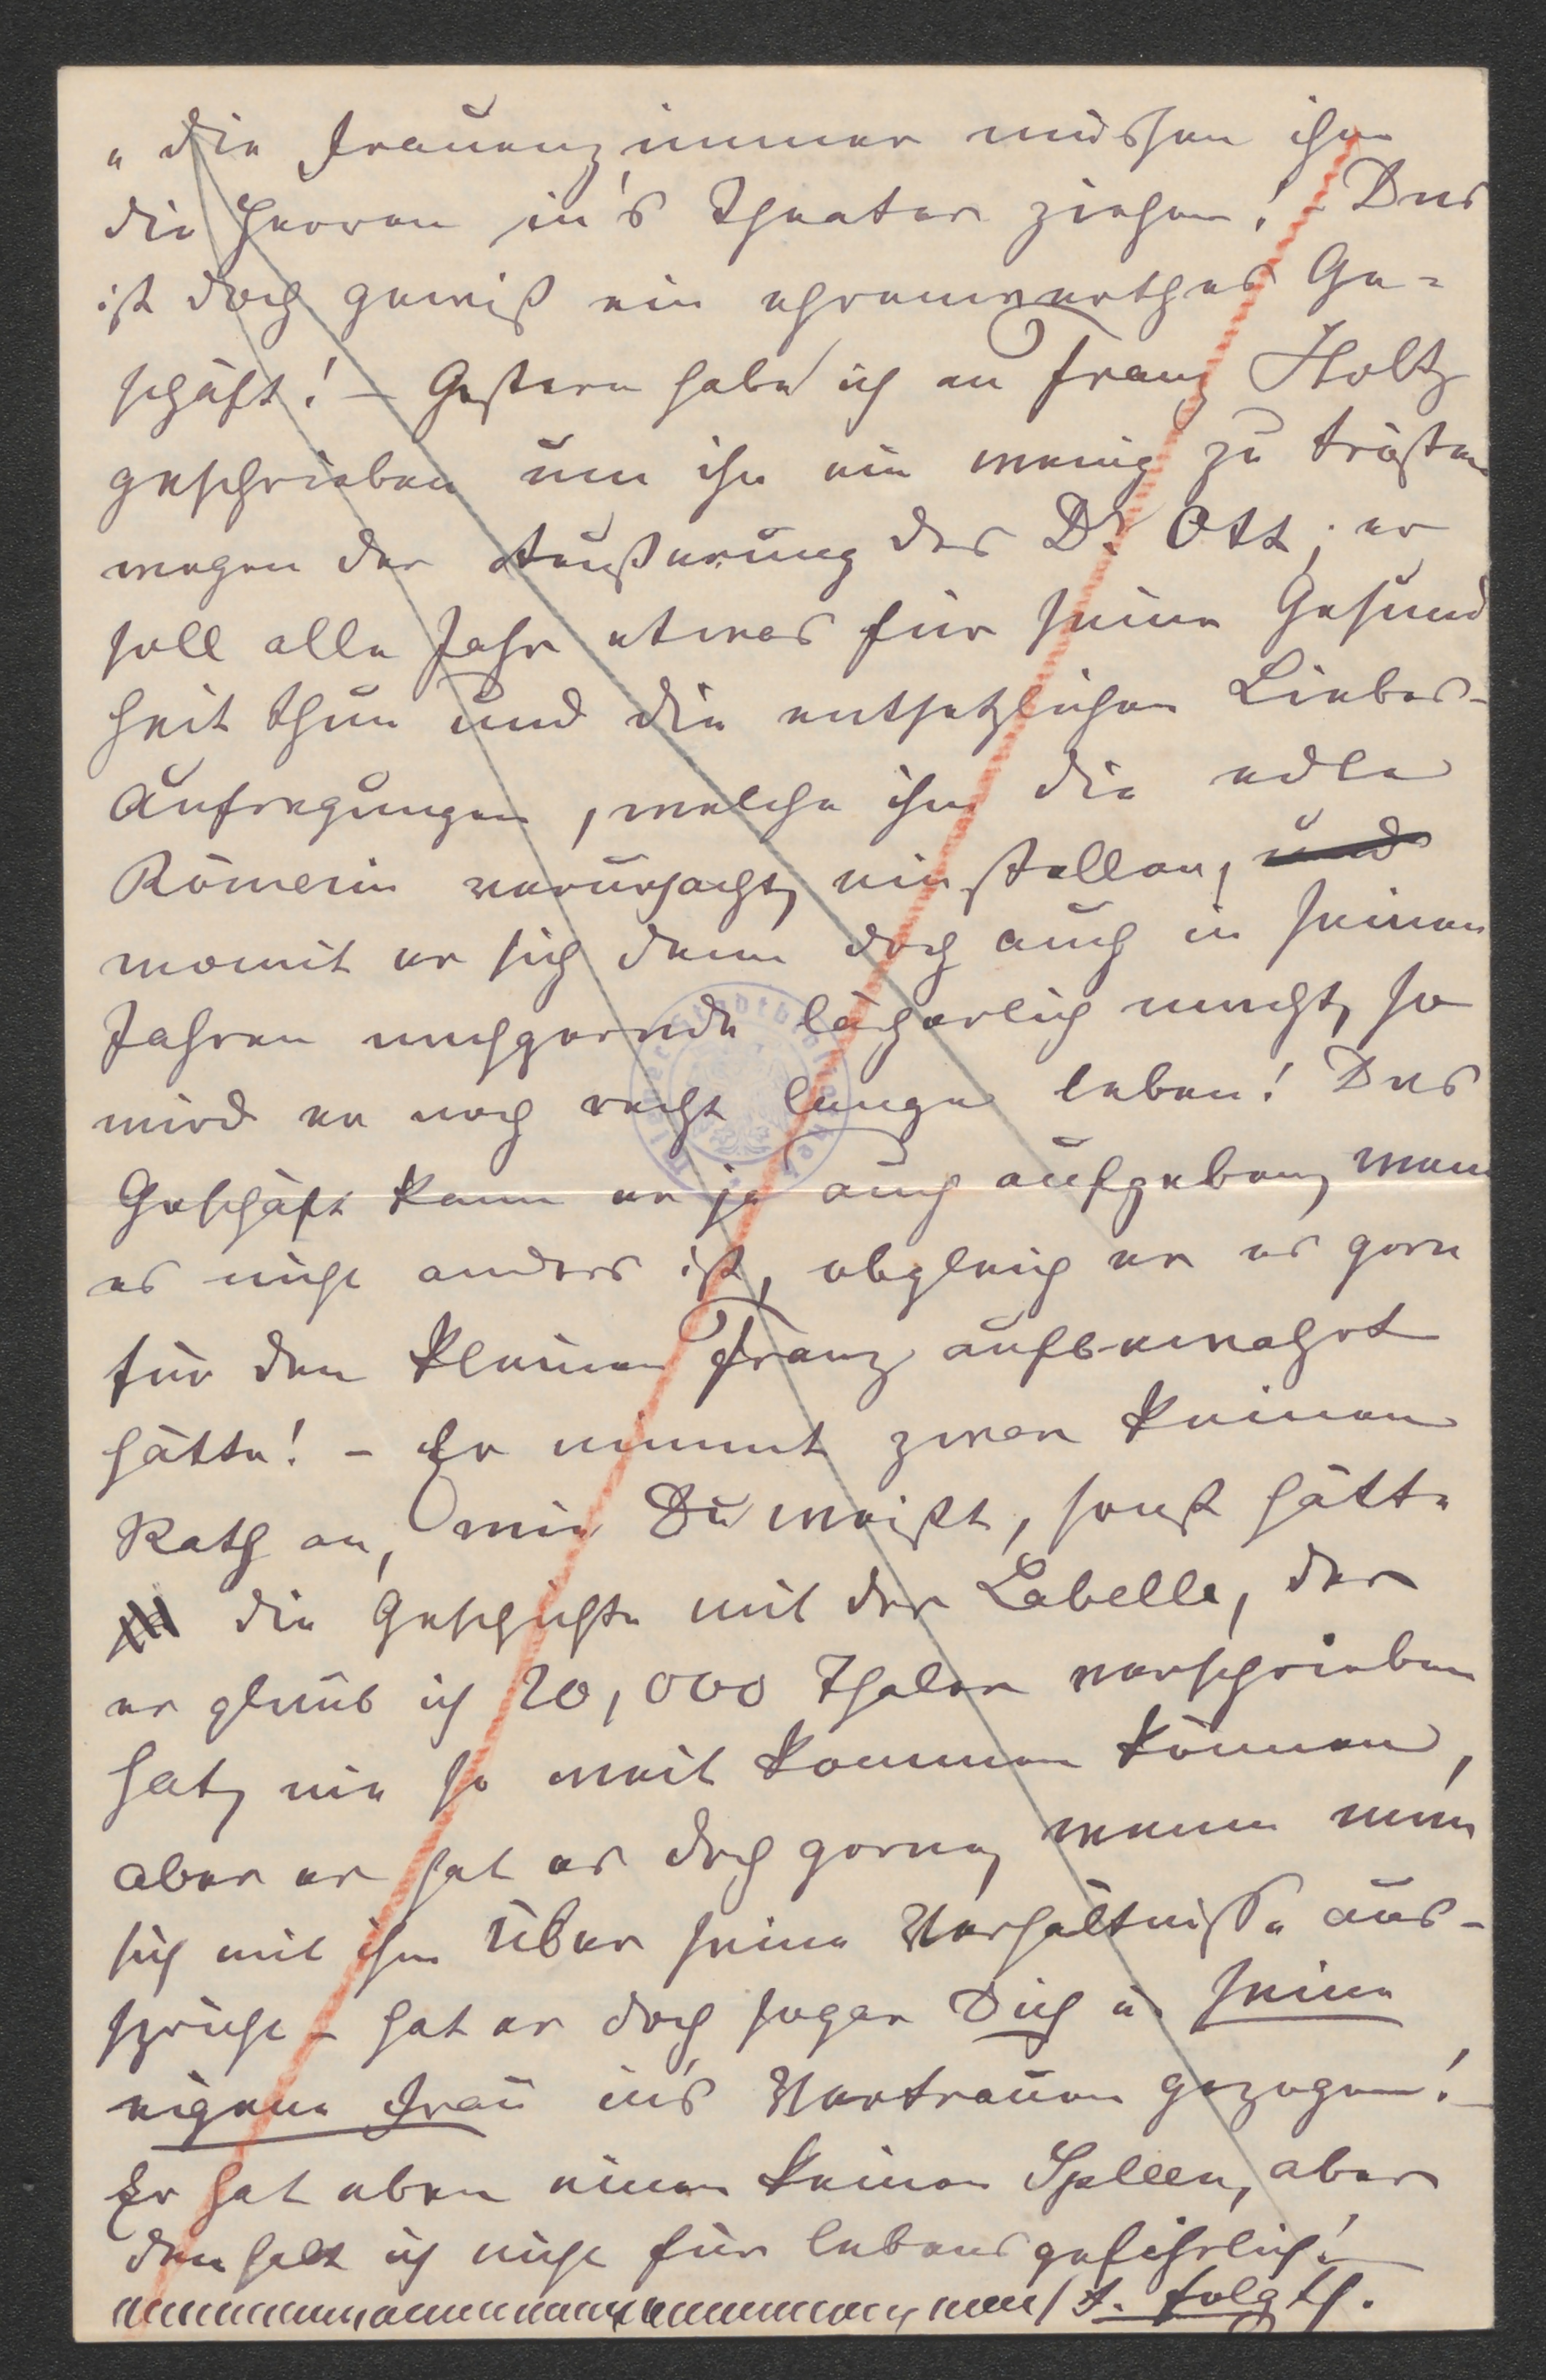 „die Frauenzimmer müssen ihm
die Herren in's Theater ziehen! – Das
ist doch gewiß ein ehrenwerthes Ge=
schäft! – Gestern habe ich an Franz Holtz
geschrieben um ihn ein wenig zu trösten
wegen der Äußerung des Dr Ott; er
soll alle Jahr etwas für seine Gesund
heit thun und die entsetzlichen Liebes-
Aufregungen, welche ihm die edle
Römerin verursacht, einstellen, und
womit er sich denn doch auch in seinen
Jahren nachgerade lächerlich macht, so
wird er noch recht lange leben! Das
Geschäft kann er ja auch aufgeben, wenn
es nicht anders ist, obgleich er es gern
für den kleinen Franz aufbewahrt
hätte! – Er nimmt zwar keinen
Rath an, wie Du weißt, sonst hätte
die Geschichte mit der Labelle, der
er glaub ich 20,000 Thaler verschrieben
hat, nie so weit kommen können,
aber er hat es doch gerne, wenn man
sich mit ihm über seine Verhältnisse aus-
spricht – hat er doch sogar Dich u. seine
eigene Frau in's Vertrauen gezogen! –
Er hat eben einen kleinen Spleen, aber
den halt ich nicht für lebensgefährlich! –
folgt
Mainzer Stadtbibliothek